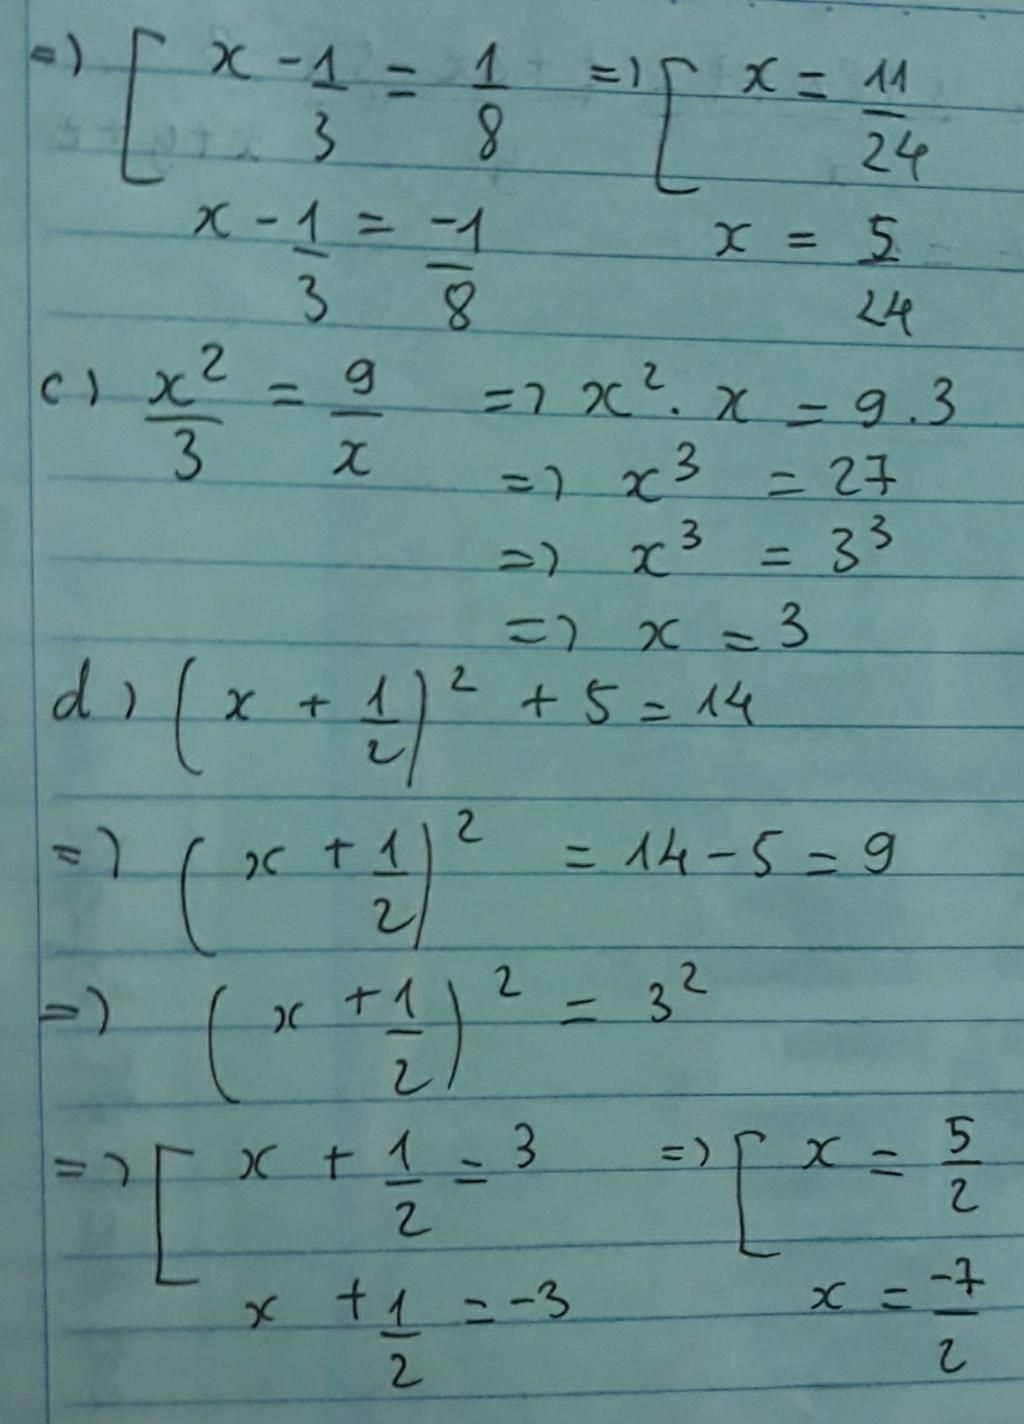 =) [ x - 1/3 = 1/8 =) [ x = 11/24
x - 1/3 = -1/8 x = 5/24
c) x²/3 = 9/x =) x² . x = 9 . 3
=) x³ = 27
=) x³ = 3³
=) x = 3
d) (x + 1/2)² + 5 = 14
=) (x + 1/2)² = 14 - 5 = 9
=) (x + 1/2)² = 3²
=) [ x + 1/2 = 3 =) [ x = 5/2
x + 1/2 = -3 x = -7/2